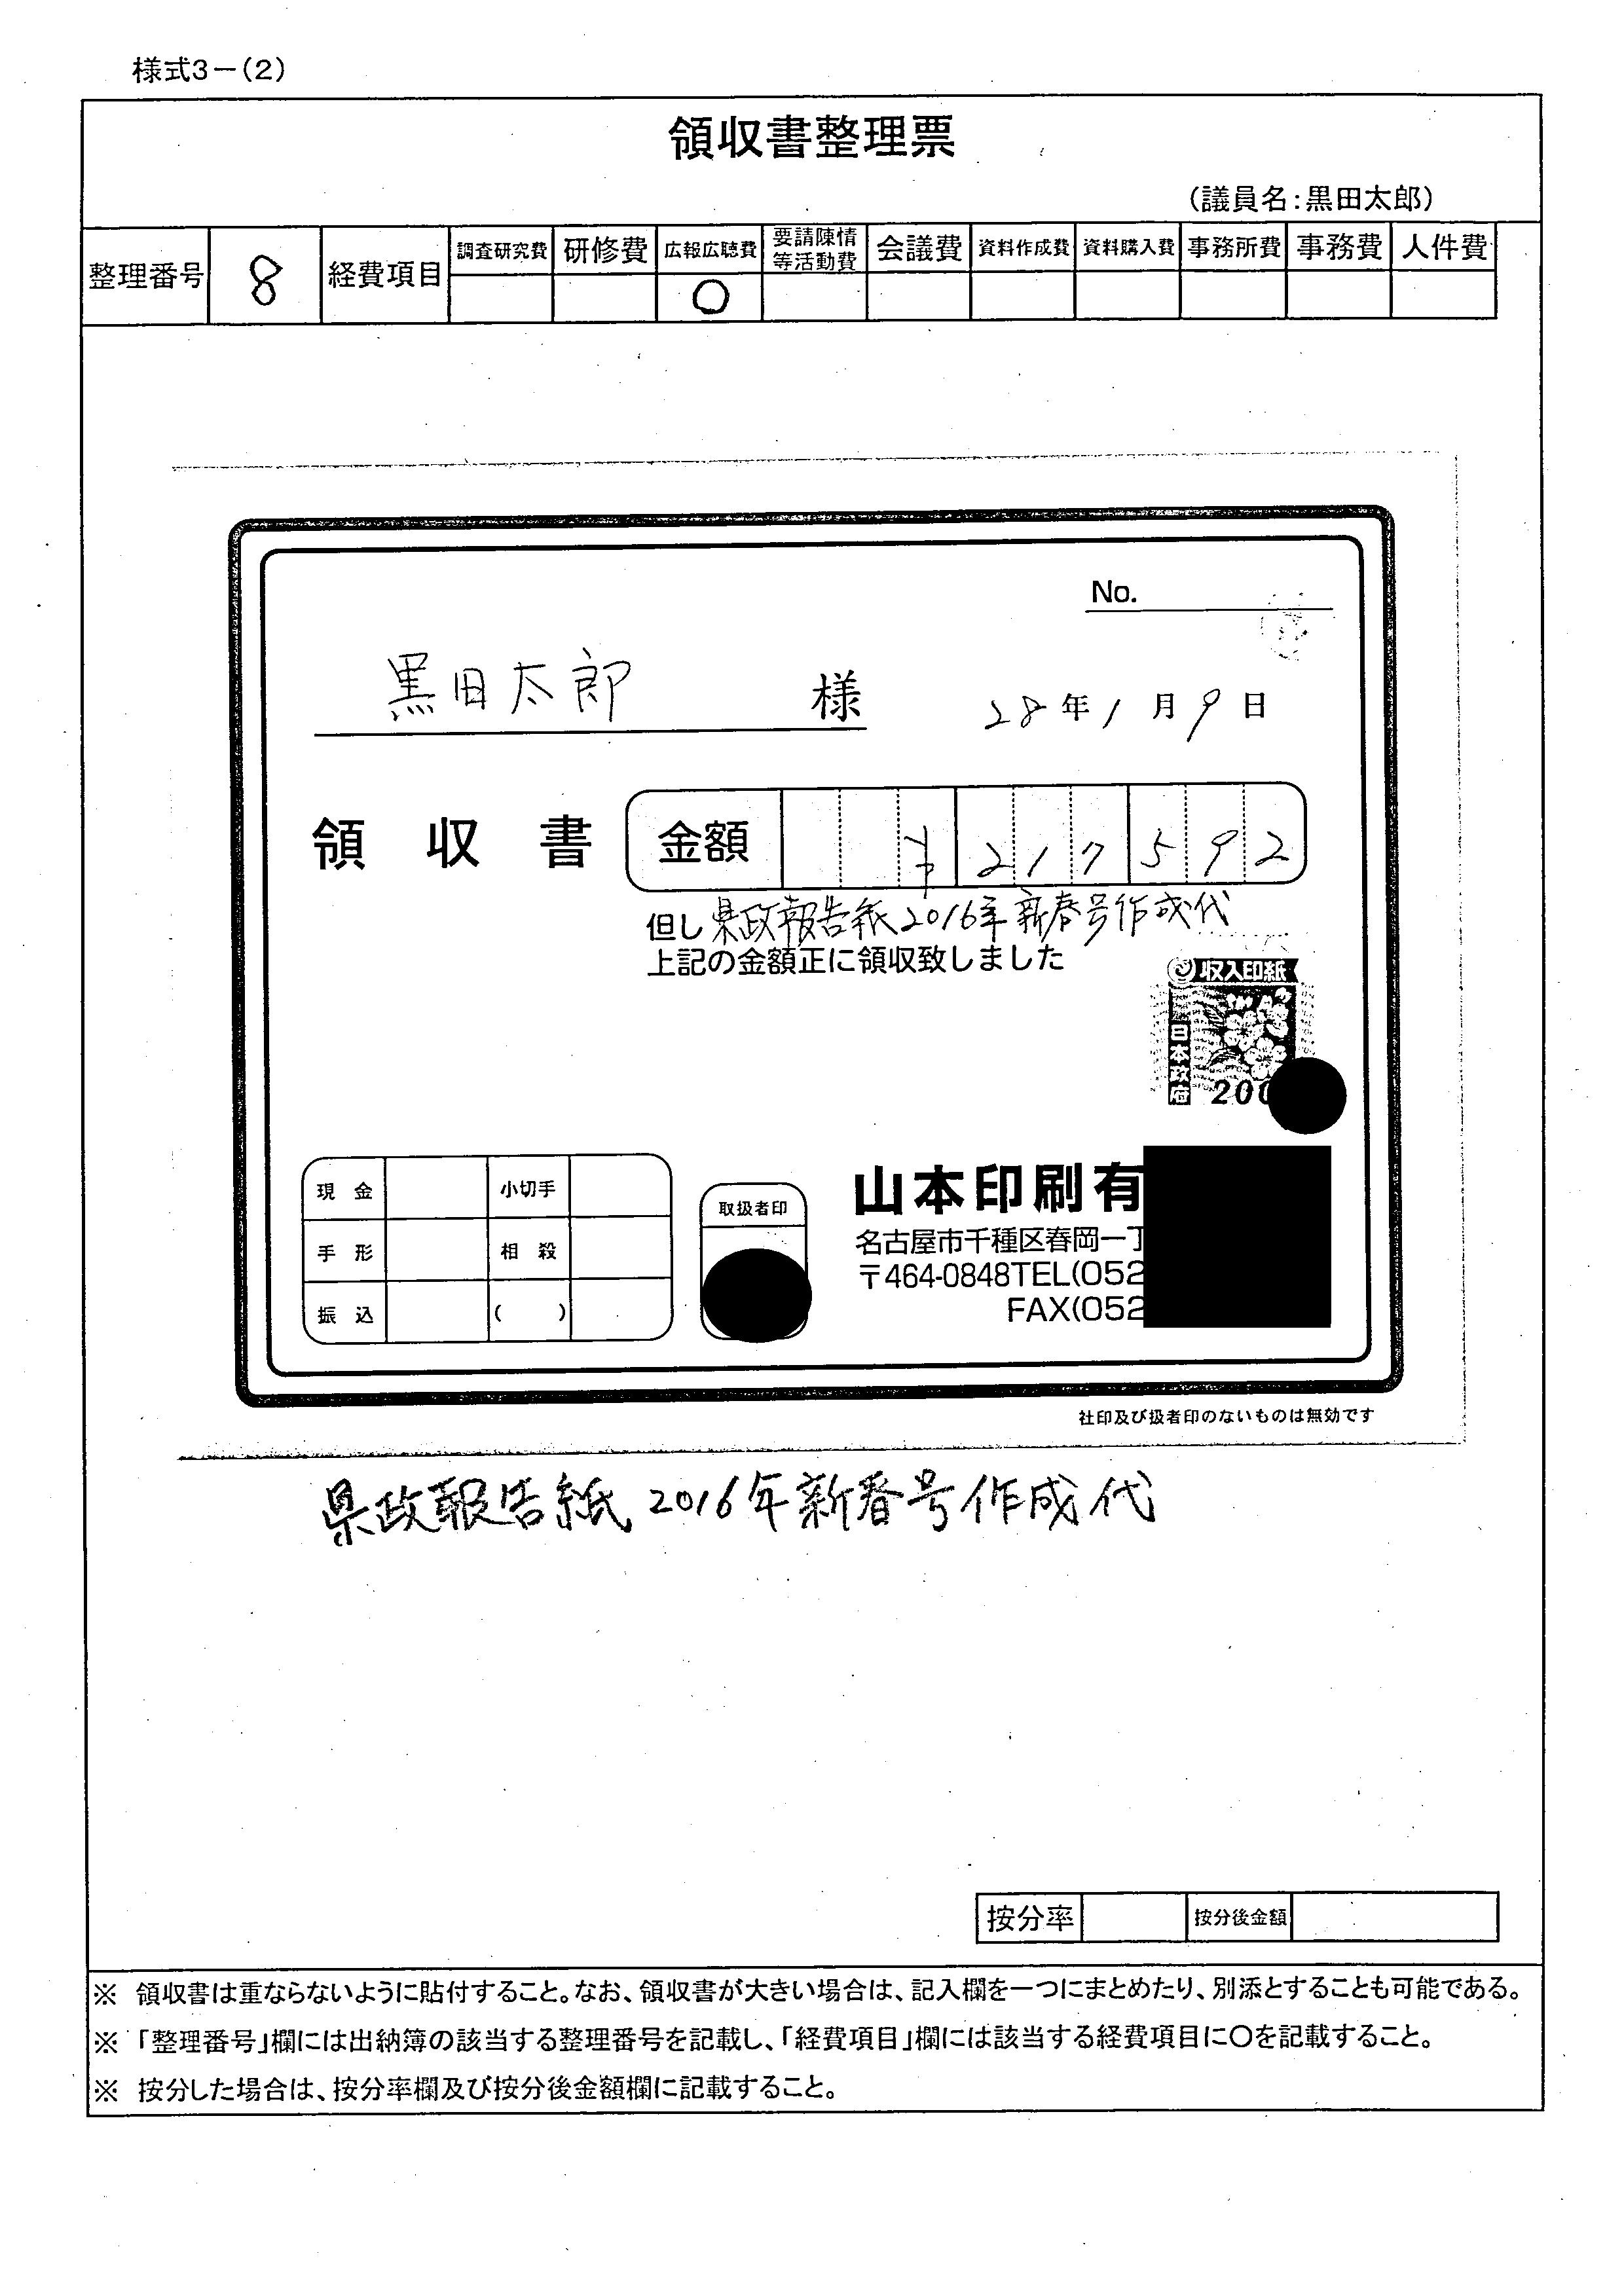 様式3－(2)
領収書整理票
(議員名:黒田太郎)
整理番号 8 経費項目 調査研究費 研修費 広報広聴費 要請陳情等活動費 会議費 資料作成費 資料購入費 事務所費 事務費 人件費
○
No.
黒田太郎 様 28年1月9日
領収書 金額 ¥217592
但し 県政報告紙2016年新春号作成代
上記の金額正に領収致しました
収入印紙
日本政府
200
現金 小切手
手形 相殺
振込 ( )
取扱者印
山本印刷有
名古屋市千種区春岡一丁
〒464-0848TEL(052
FAX(052
社印及び扱者印のないものは無効です
県政報告紙2016年新春号作成代
按分率 按分後金額
※ 領収書は重ならないように貼付すること。なお、領収書が大きい場合は、記入欄を一つにまとめたり、別添とすることも可能である。
※ 「整理番号」欄には出納簿の該当する整理番号を記載し、「経費項目」欄には該当する経費項目に○を記載すること。
※ 按分した場合は、按分率欄及び按分後金額欄に記載すること。